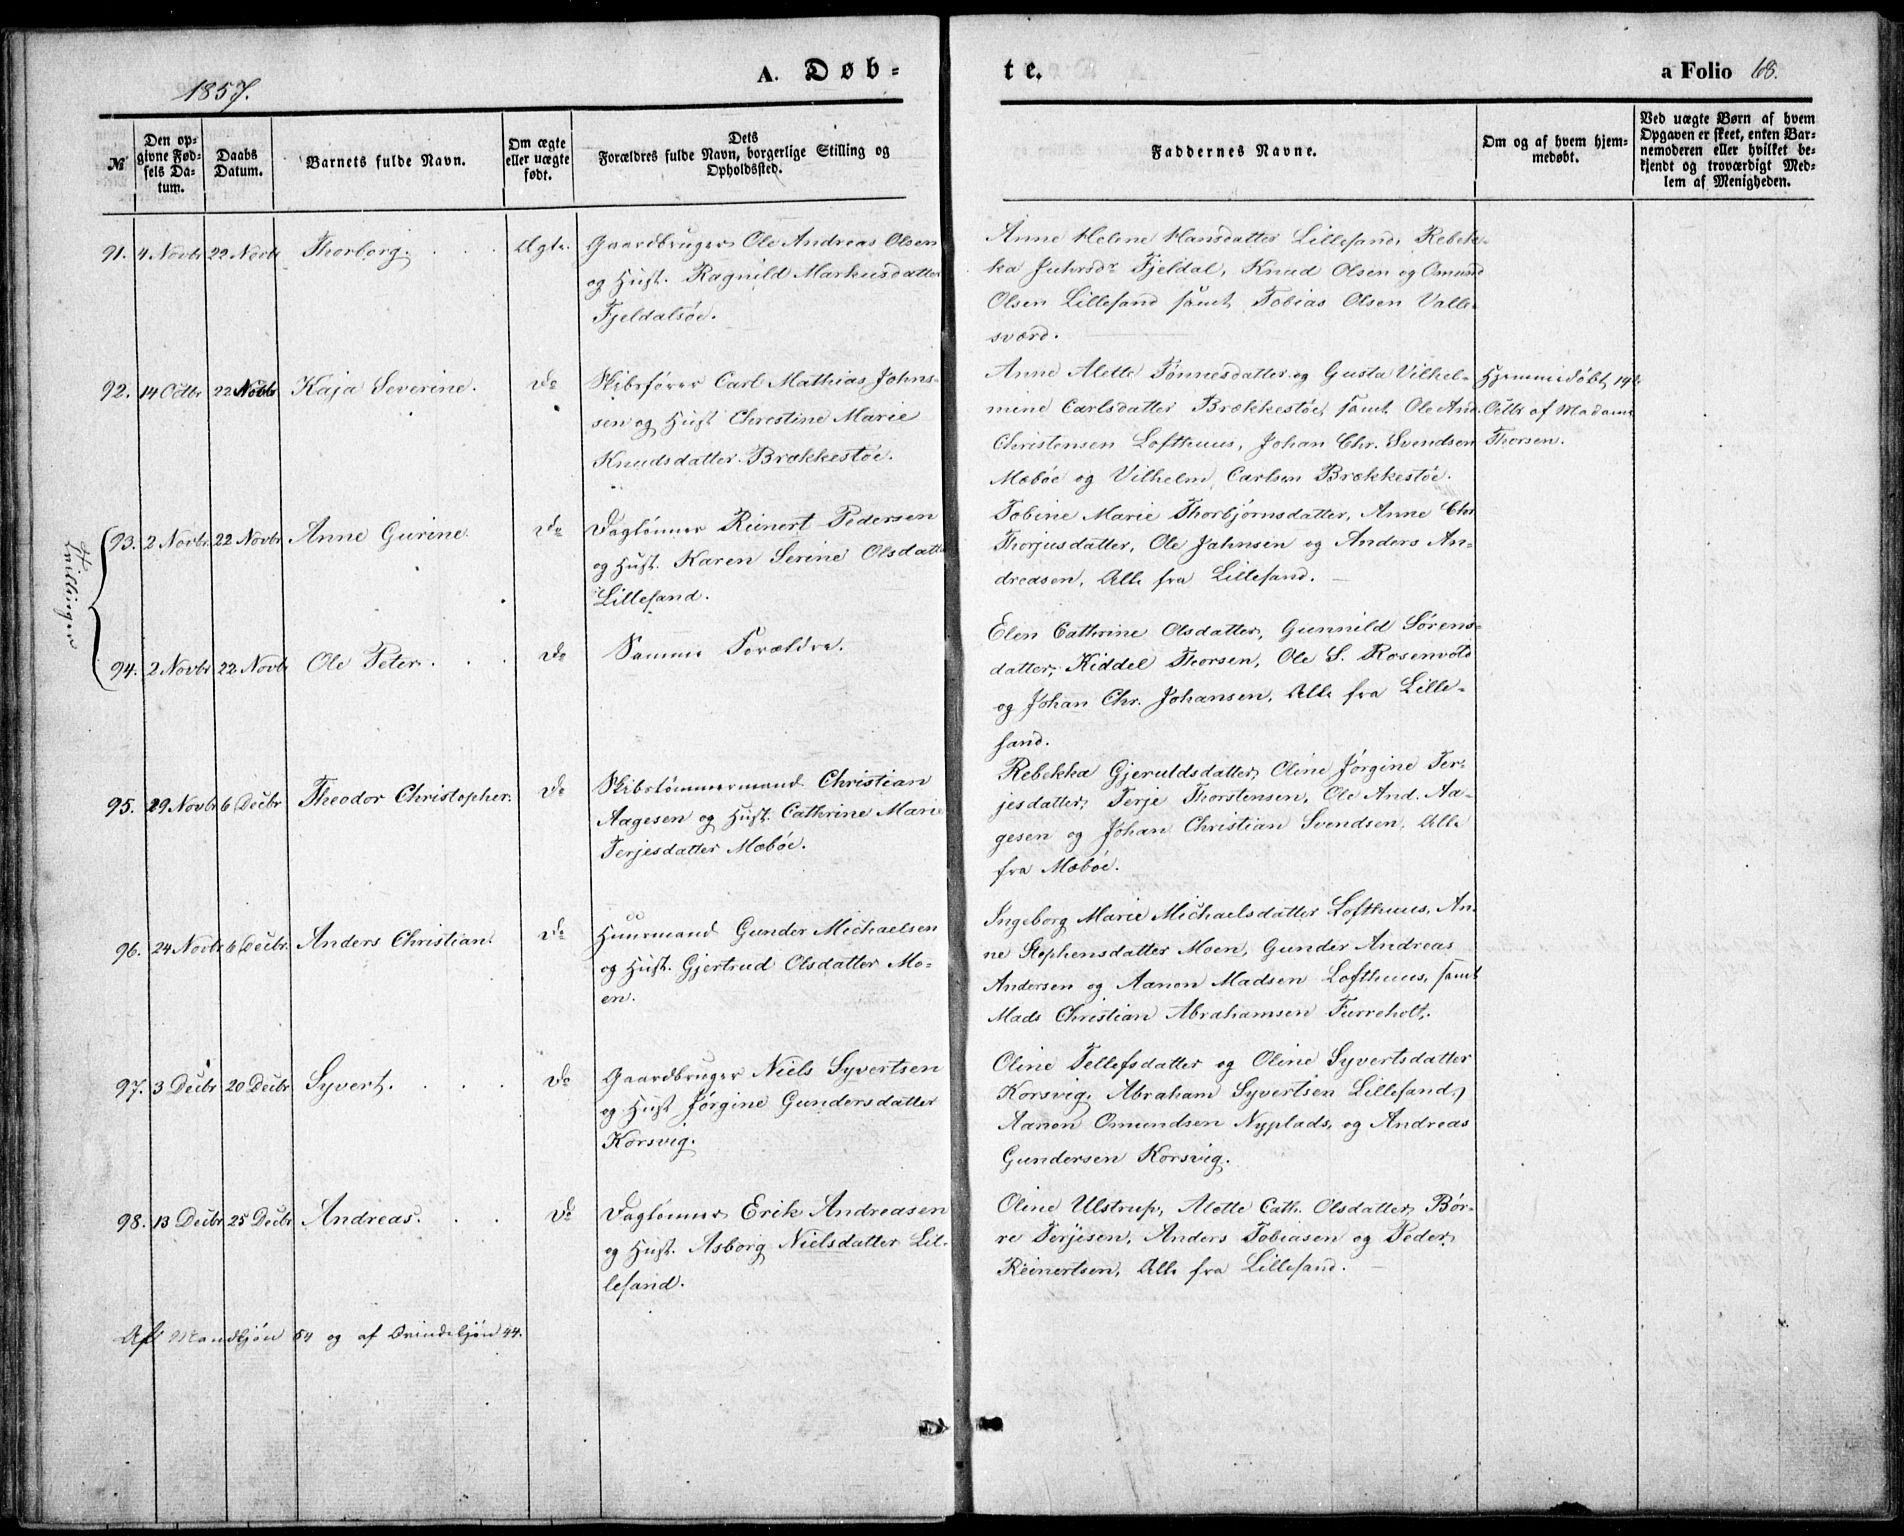 1857.
A. Døb-
te.
a Folio 68.
№
Den op-
givne Fød-
sels Da-
tum.
Daabs
Datum.
Barnets fulde Navn.
Om ægte
eller uægte
født.
Dets
Forældres fulde Navn, borgerlige Stilling og
Opholdssted.
Faddernes Navne.
Om og af hvem hjem-
medøbt.
Ved uægte Børn af hvem
Opgaven er skeet, enten Bar-
nemoderen eller hvilket be-
kjendt og troværdigt Med-
lem af Menigheden.
91. 4 Novbr 22 Novbr Thorborg. Ægte.
Gaardbruger Ole Andreas Olsen
og Hust. Ragnild Markusdatter
Fjeldalsöe.
Anne Helene Hansdatter Lillesand, Rebek-
ka Juhrsdr Fjeldal, Knud Olsen og Omund
Olsen Lillesand samt Tobias Olsen Valle-
sværd.
92. 14 Octbr 22 Novbr Kaja Severine. Do
Skibsfører Carl Mathias Johns-
sen og Hust Christine Marie
Knudsdatter Brækkestöe.
Anne Alette Tönnesdatter og Gusta Vilhel-
mine Carlsdatter Brækkestöe, samt Ole And.
Christensen Lofthuus, Johan Chr. Svendsen
Mæböe og Vilhelm Carlsen Brækkestöe.
Hjemmedøbt 14de
Octbr af Madame
Thorsen.
Tvillinger
93. 2 Novbr. 22 Novbr Anne Gurine. Do
Daglönner Reinert Pedersen
og Hust. Karen Serine Olsdatter
Lillesand.
Tobine Marie Thorbjørnsdatter, Anne Chr.
Thorjusdatter, Ole Jahnsen og Anders An-
dreasen, Alle fra Lillesand.
94. 2 Novbr 22 Novbr Ole Peter. Do
Samme Forældre.
Elen Cathrine Olsdatter, Gunnild Sørens-
datter, Kiddel Thorsen, Ole S. Rosenvold
og Johan Chr. Johansen, Alle fra Lille-
sand.
95. 29 Novbr 6 Decbr Theodor Christopher. Do
Skibstömmermand Christian
Aagesen og Hust. Cathrine Marie
Terjesdatter Mæböe.
Rebekka Gjeruldsdatter, Oline Jørgine Ter-
jesdatter, Terje Thorstensen, Ole And. Aa-
gesen og Johan Christian Svendsen, Alle
fra Mæböe.
96. 24 Novbr 6 Decbr. Anders Christian. Do
Huurmand Gunder Michaelsen
og Hust. Gjertrud Olsdatter Mo-
en.
Ingeborg Marie Michaelsdatter Lofthuus, An-
ne Stephensdatter Moen, Gunder Andreas
Andersen og Aanon Madsen Lofthuus, samt
Mads Christian Abrahamsen Furreholt.
97. 3 Decbr 20 Decbr Syvert. Do
Gaardbruger Niels Syvertsen
og Hust Jörgine Gundersdatter
Korsvig.
Oline Tellefsdatter og Oline Syvertsdatter
Korsvig, Abraham Syvertsen Lillesand,
Aanon Omundsen Nyplads, og Andreas
Gundersen Korsvig.
98. 13 Decbr 25 Decbr Andreas. Do
Daglönner Erik Andreasen
og Hust. Asborg Nielsdatter Lil-
lesand.
Oline Ulstrup, Alette Cath. Olsdatter, Bör-
re Terjesen, Anders Tobiasen og Peder
Reinertsen, Alle fra Lillesand.
Af Mandkjön 54 og af Qvindekjön 44.